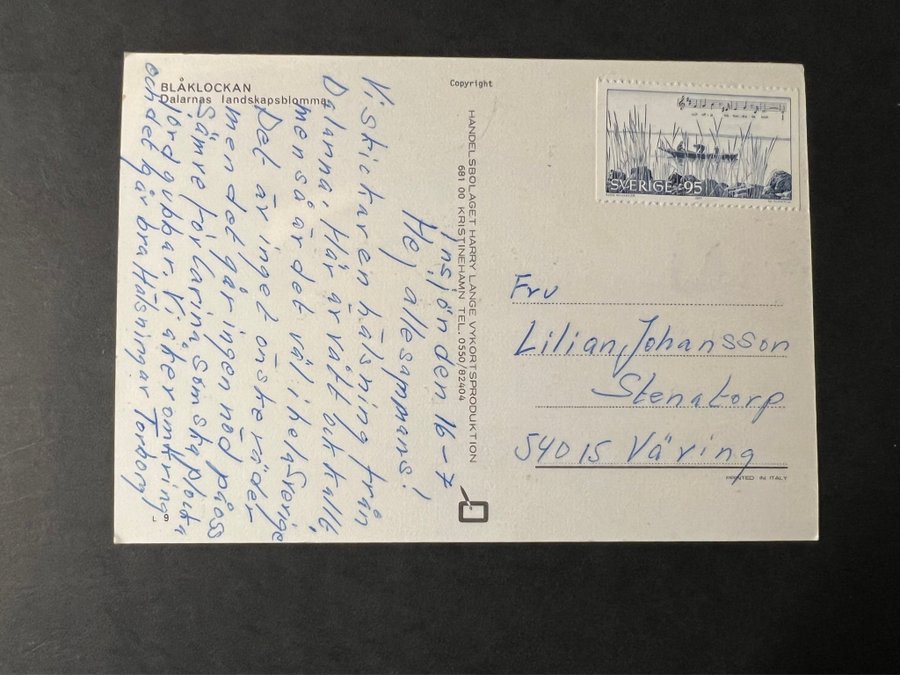 BLÅKLOCKAN
Dalarnas landskapsblomma
Insjön den 16-7
Hej allesammans!
Vi skickar en hälsning från
Dalarna, Här är vått och kallt
men så är det väl i hela Sverige
Det är inget önskeväder
men det går ingen nöd på oss
Sämre för Carina som ska plocka
jordgubbar. Vi åker omkring
och det går bra Hälsningar Torborg
L 9
Copyright
HANDELSBOLAGET HARRY LANGE VYKORTSPRODUKTION
681 00 KRISTINEHAMN TEL. 0550/82404
SVERIGE 95
Fru
Lilian Johansson
Stenatorp
54015 Väring
PRINTED IN ITALY